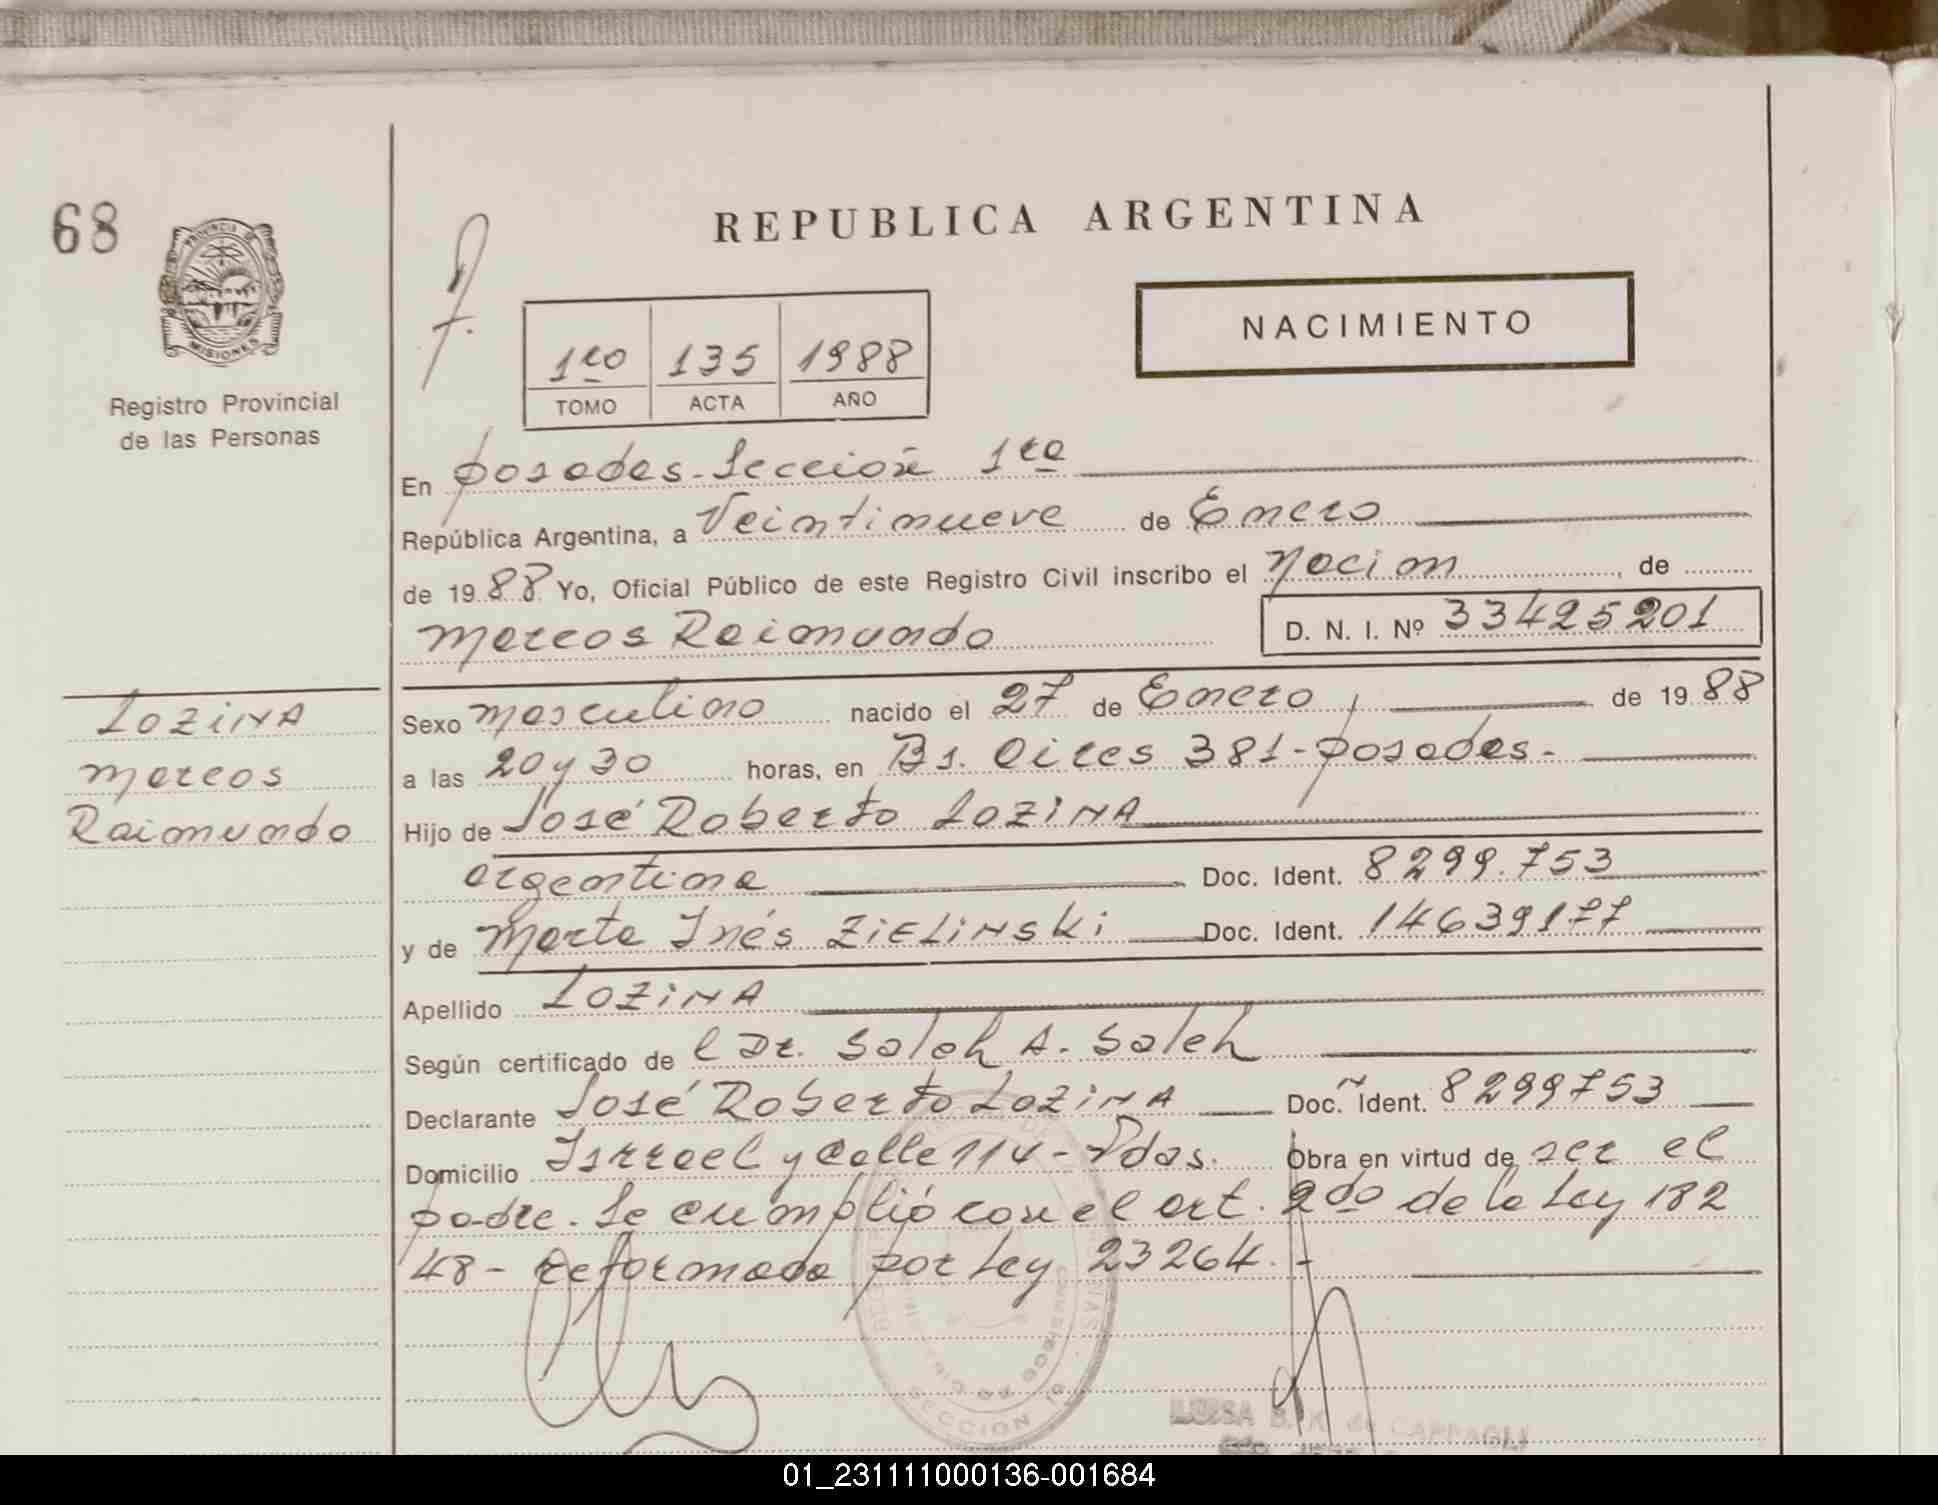 68
PROVINCIA DE
MISIONES
Registro Provincial
de las Personas
REPUBLICA ARGENTINA
NACIMIENTO
1ro 135 1988
TOMO ACTA AÑO
En posadas - Sección 1ra
República Argentina, a Veintinueve de Enero
de 1988 Yo, Oficial Público de este Registro Civil inscribo el Nacim, de
Marcos Raimundo D. N. I. Nº 33425201
LOZINA
Marcos
Raimundo
Sexo masculino nacido el 27 de Enero, de 1988
a las 20 y 30 horas, en Bs. Aires 381 - posadas -
Hijo de José Roberto LOZINA
argentina Doc. Ident. 8299.753
y de Marta Inés ZIELINSKI Doc. Ident. 14639177
Apellido LOZINA
Según certificado de l Dr. Saleh A. Saleh
Declarante José Roberto LOZINA Doc. Ident. 8299753
Domicilio Isrrael y Calle 114 - Pdas. Obra en virtud de ser el
padre. Se cumplió con el art. 2do de la Ley 182
48 - reformada por Ley 23264. -
SECCION 1a
LUISA B. K. de CAPPAGLI
01_231111000136-001684